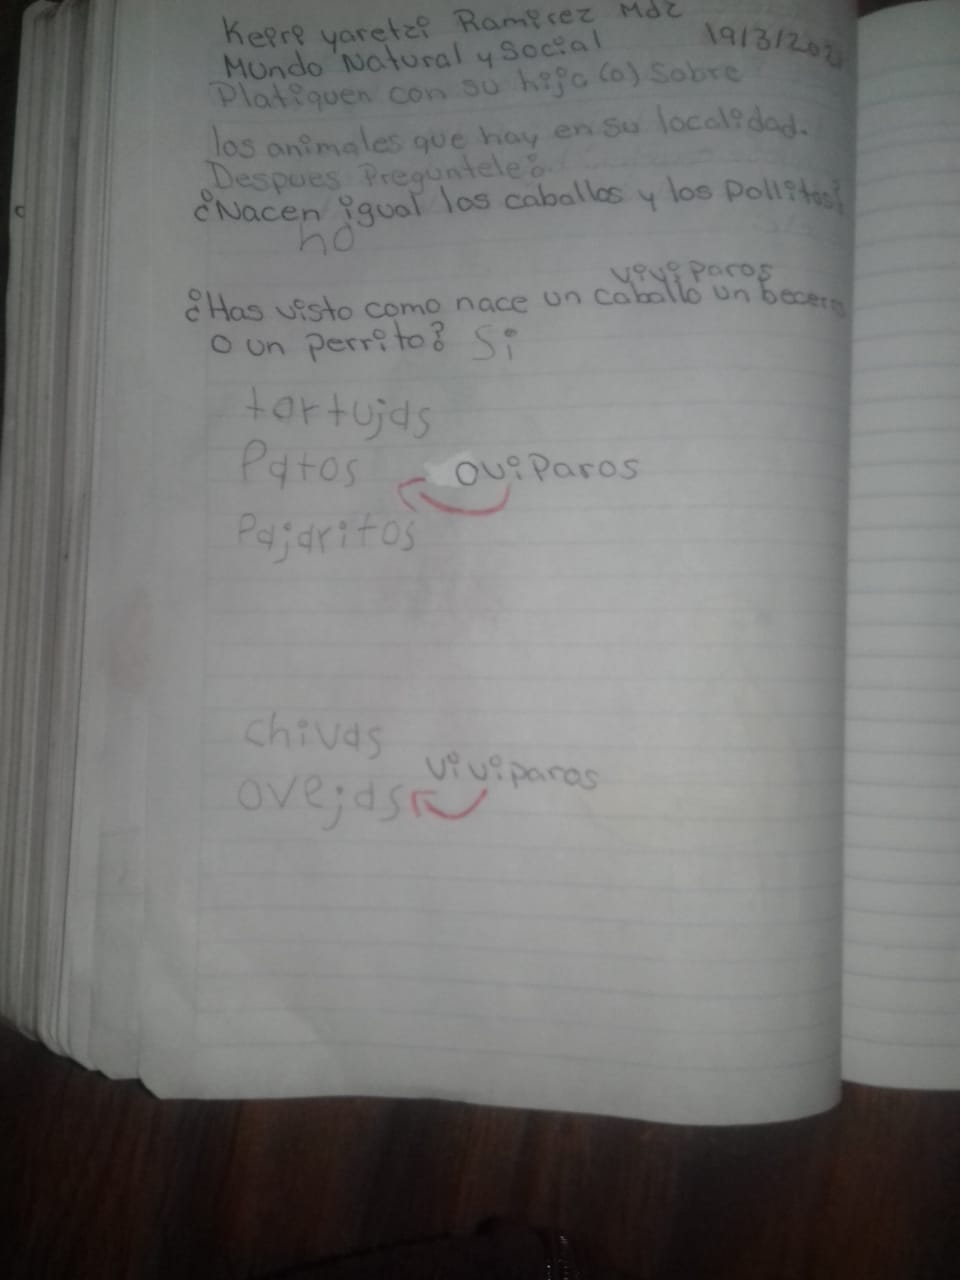 Keiri yaretzi Ramirez Mdz
Mundo Natural y Social 19/3/202
Platiquen con su hija (o) Sobre
los animales que hay en su localidad.
Despues Preguntele:
¿Nacen igual los caballos y los Pollitos?
no
viviparos
¿Has visto como nace un caballo un becerro
o un perrito? Si
tortujas
Patos oviparos
Pajaritos
chivas
viviparos
ovejas